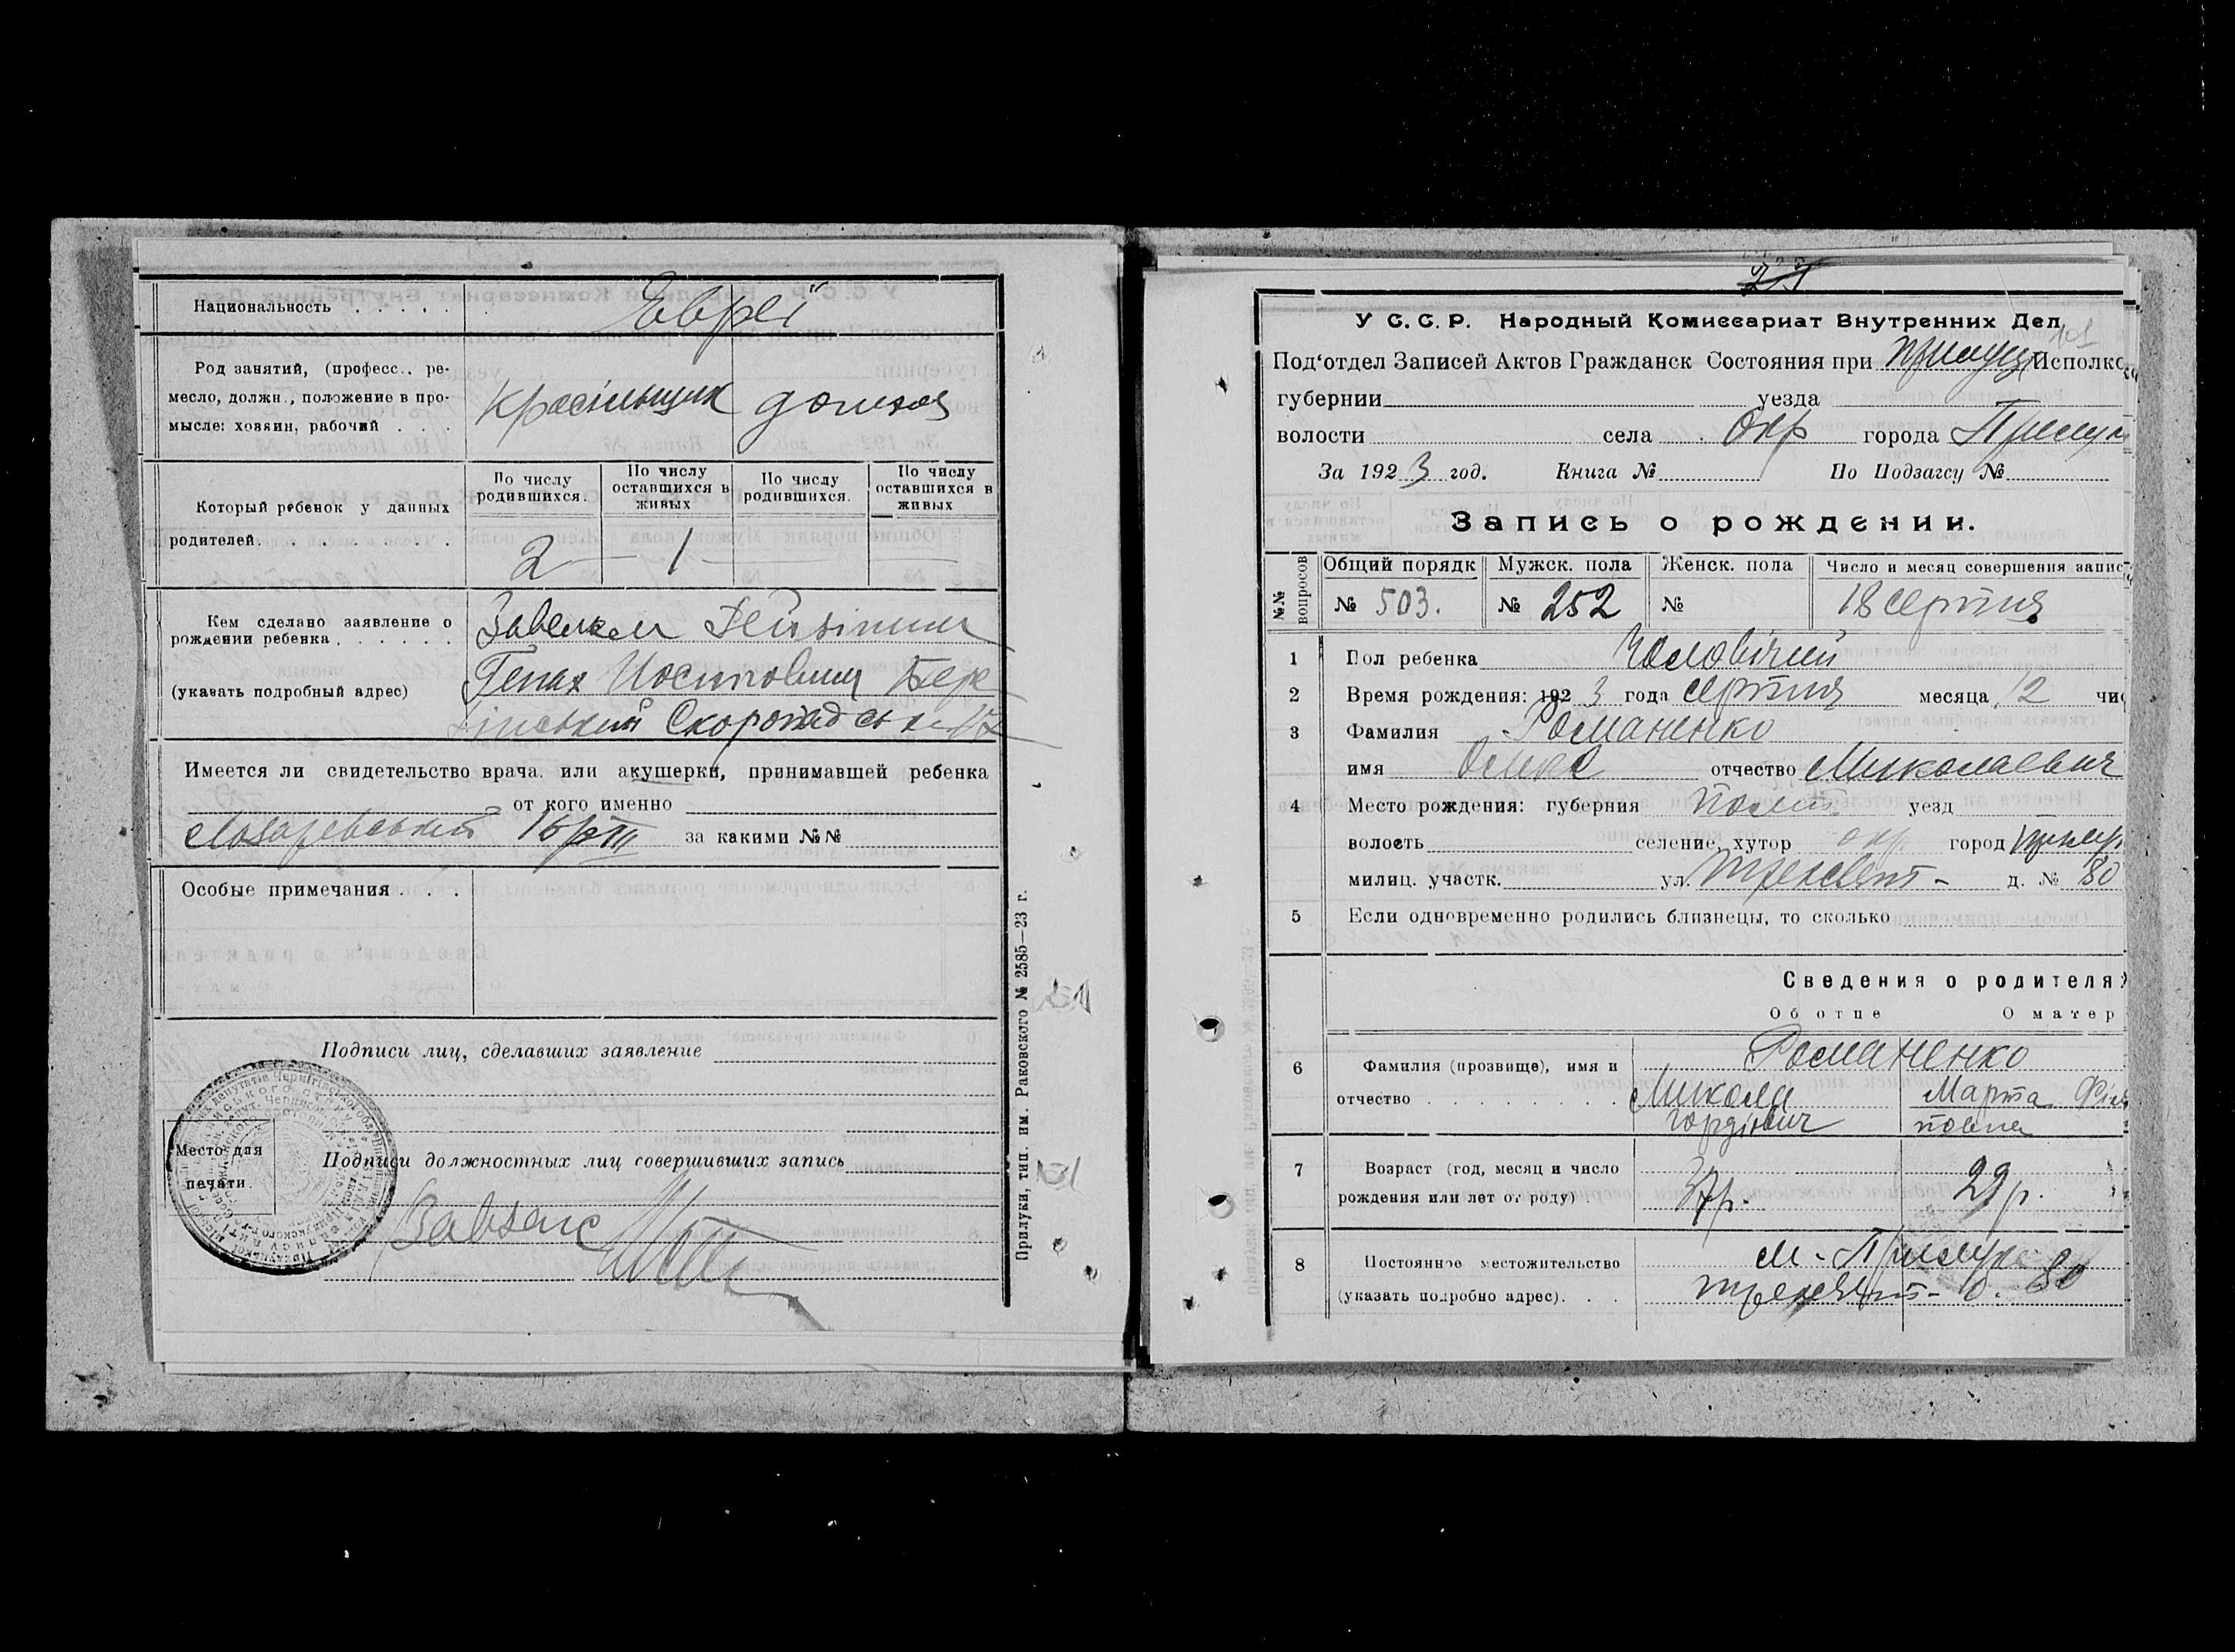 Национальность . . . . . Евреї
Род занятий, (професс., ре-
месло, должн., положение в про-
мысле: хозяин, рабочий . . .
Красільщик
По числу родившихся.
По числу оставшихся в живых
По числу родившихся.
По числу оставшихся в живых
Который ребенок у данных
родителей. . . . . . . .
2 — 1 —
Кем сделано заявление о
рождении ребенка . . . . . .
(указать подробный адрес)
Генах Иосипович Бере
зінський Скоропадськ
Имеется ли свидетельство врача или акушерки, принимавшей ребенка
от кого именно
Лазаревський за какими №№
Особые примечания . . .
Подписи лиц, сделавших заявление
Место для
печати.
Подписи должностных лиц совершивших запись
Завзагс
Прилуки, тип. им. Раковского № 2585—23 г.
У С. С. Р. Народный Комиссариат Внутренних Дел
Под'отдел Записей Актов Гражданск Состояния при Прилуц Исполко
губернии уезда
волости села Окр города Прилуки
За 1923 год. Книга № По Подзагсу №
Запись о рождении.
№№ вопросов
Общий порядк № 503.
Мужск. пола № 252
Женск. пола №
Число и месяц совершения запис 18 серпня
1 Пол ребенка Чоловічий
2 Время рождения: 1923 года серпня месяца 12 чис
3 Фамилия Романенко
имя отчество Миколаевич
4 Место рождения: губерния Полт. уезд
волость селение, хутор окр город Прилук
милиц. участк. ул. д. № 80
5 Если одновременно родились близнецы, то сколько
Сведения о родителях
Об отце О матер
6 Фамилия (прозвище), имя и
отчество . . . . . . . . .
Романенко
Микола
Гордієвич
Марта Філі
повна
7 Возраст (год, месяц и число
рождения или лет от роду) .
37р. 29р.
8 Постоянное местожительство
(указать подробно адрес). . . .
м. Прилуки
80